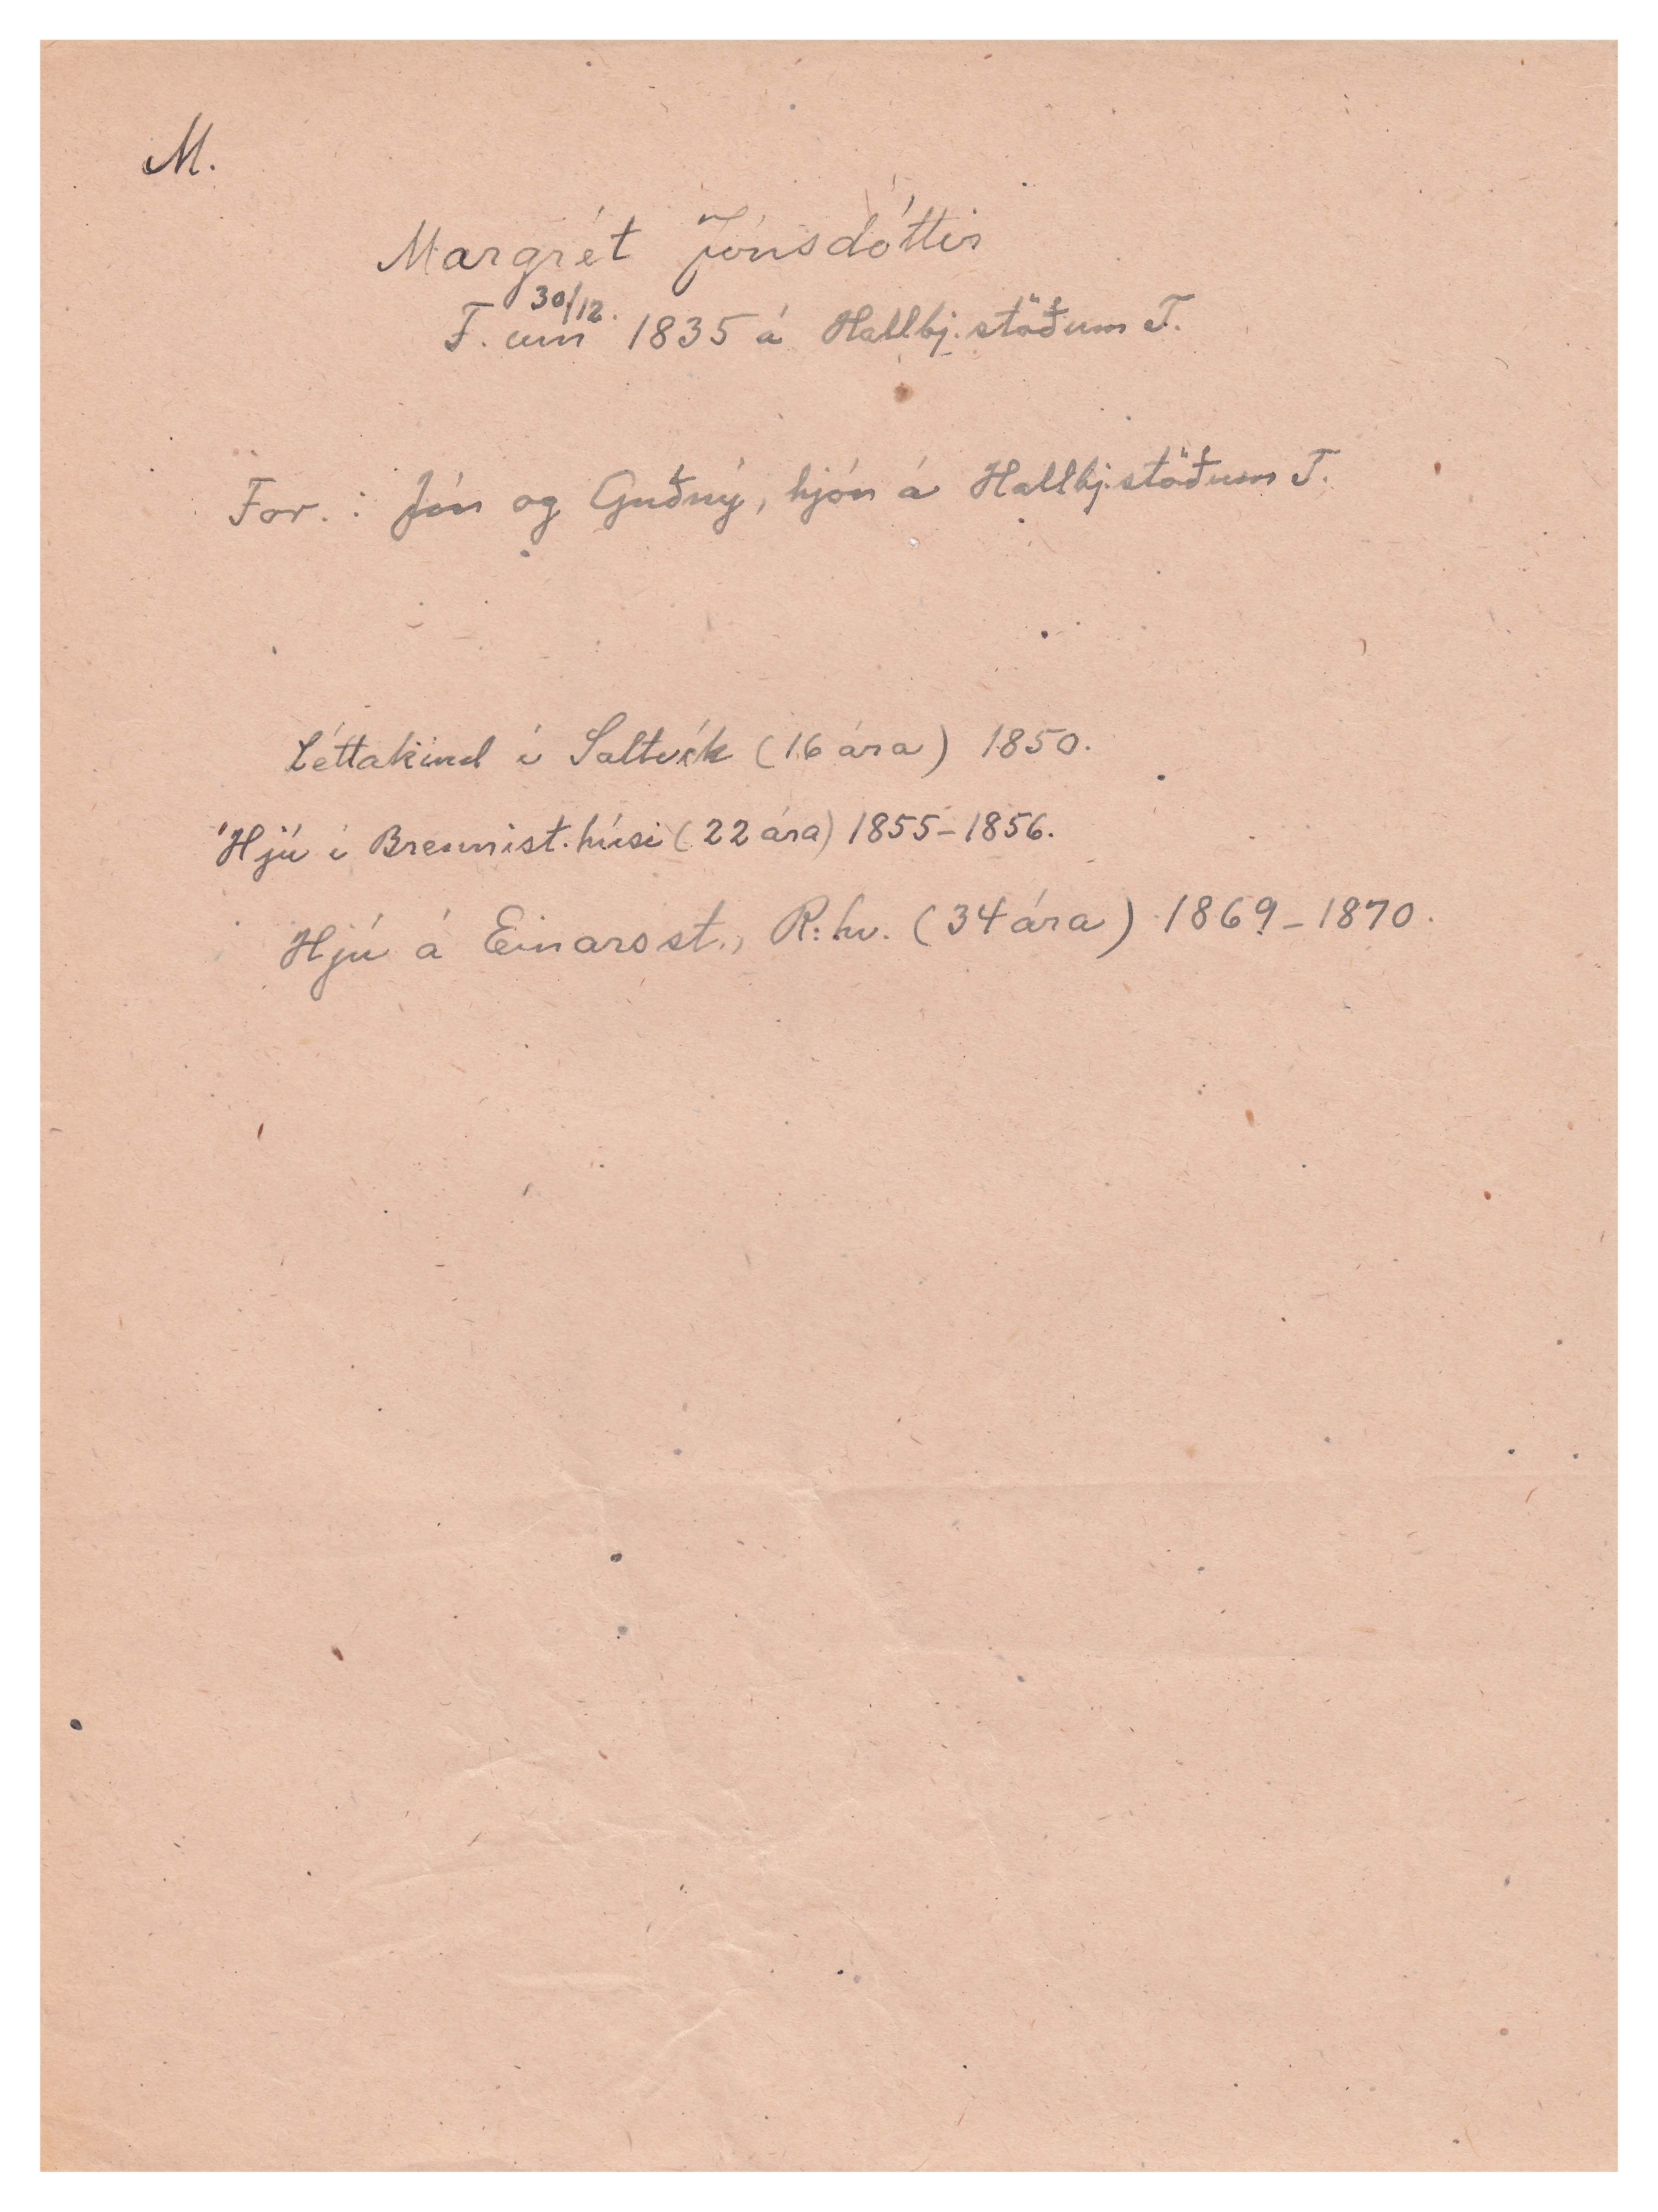 M.
Margrét Jónsdóttir
30/12.
F. um 1835 á Hallbj.stöðum T.
For.: Jón og Guðný, hjón á Hallbj.stöðum T.
Léttakind í Saltvík (16 ára) 1850.
Hjú í Brennist.húsi (22 ára) 1855-1856.
Hjú á Einarsst., R.hv. (34 ára) 1869-1870.